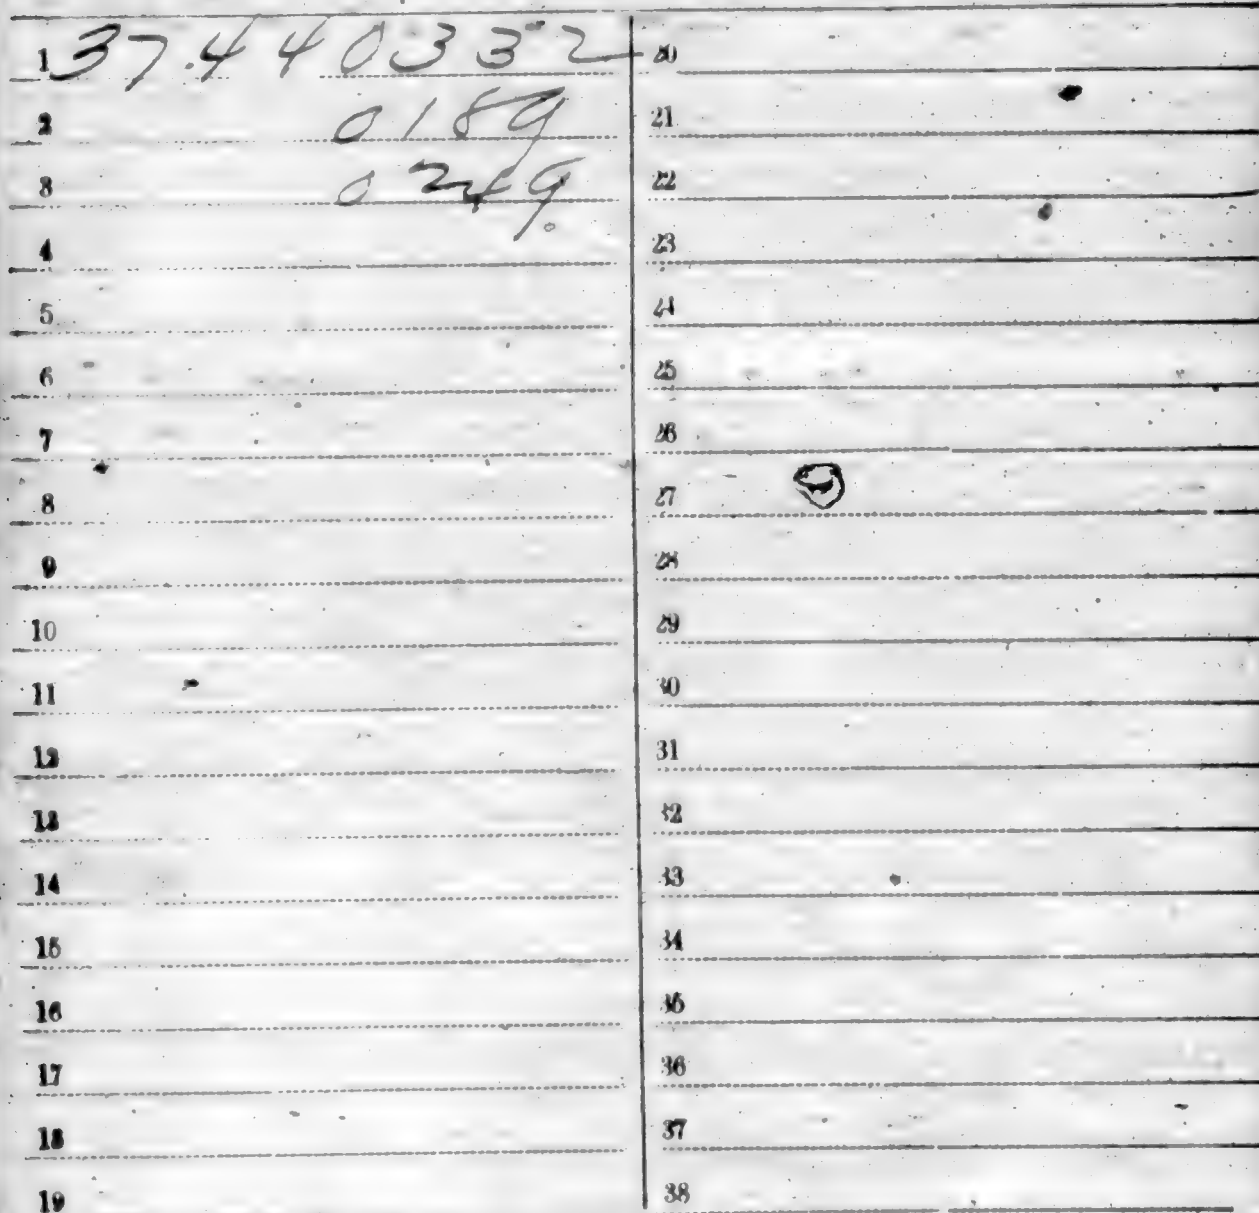 1 37.4 4 0 3 3 2
2 0189
3 0249
4
5
6
7
8
9
10
11
12
13
14
15
16
17
18
19
20
21
22
23
24
25
26
27
28
29
30
31
32
33
34
35
36
37
38